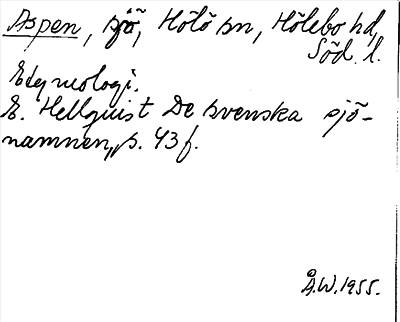 Aspen, sjö, Hölö sn, Hölebo hd,
Söd. l.
Etymologi.
E. Hellquist De svenska sjö-
namnen, s. 43 f.
Å.W. 1955.